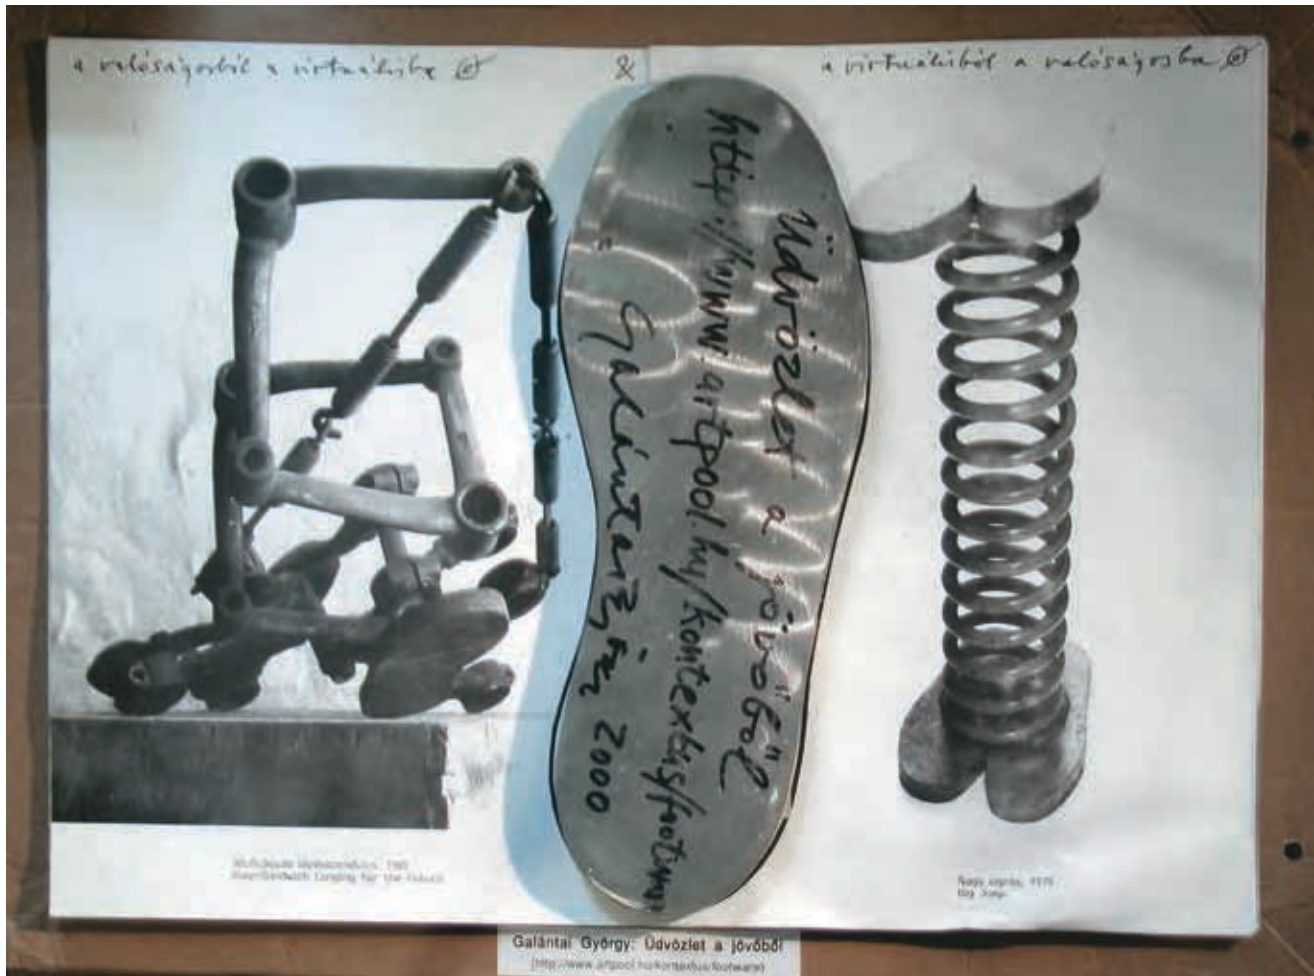 a valóságosból a virtuálisba
&
a virtuálisból a valóságosba
Üdvözlet a jövőből
http://www.artpool.hu/kontextus/footware
Galántai György 2000
for the Future
Nagy ugrás, 1979
Big Jump
Galántai György: Üdvözlet a jövőből
(http://www.artpool.hu/kontextus/footware)